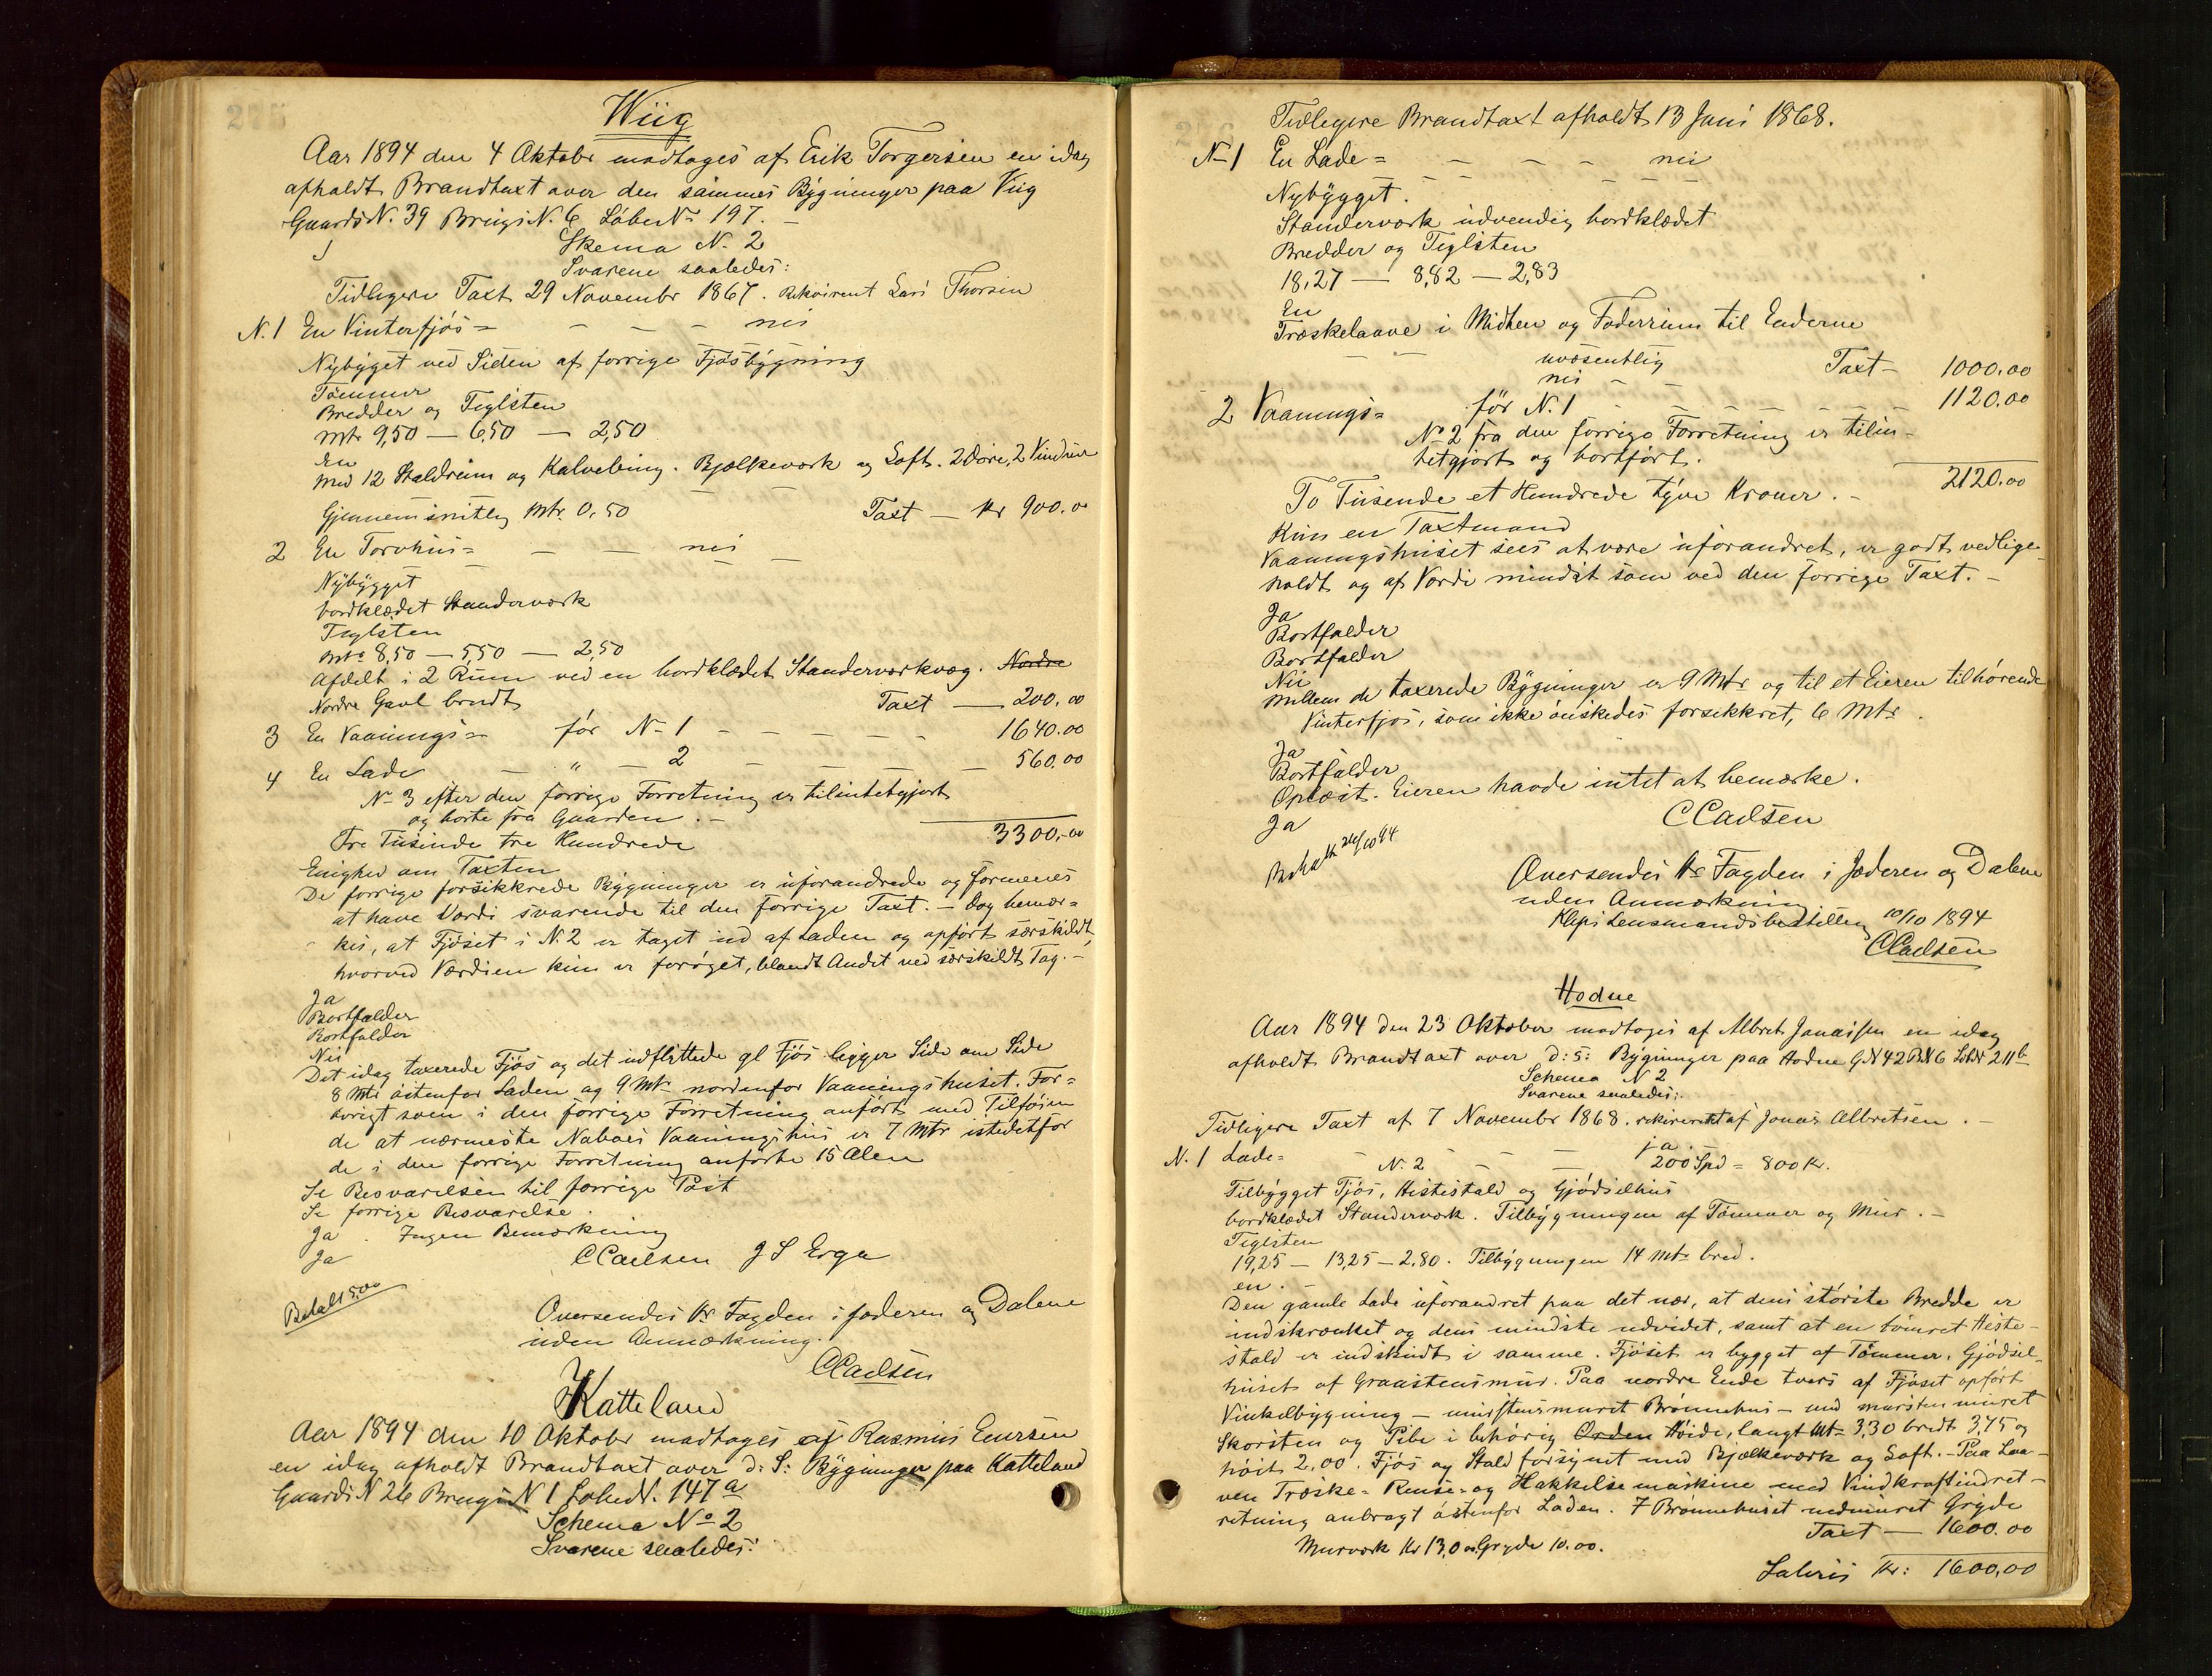 Wiig
Aar 1894 den 4 Oktobr modtoges af Erik Torgersen en idag
afholdt Brandtaxt over den sammes Bygninger paa Viig
Gaards N. 39 Brugs N. 6 Løbe Nr 197. –
Skema N. 2
Svarene saaledes:
Tidligere Taxt 29 Novembr 1867. Rekvirent Lars Thorsen
N. 1 En Vinterfjøs = – – – nei
Nybyget ved Siden af forrige Fjøsbygning
Tømmer
Bredder og Teglsten
Mtr 9,50 — 6,50 — 2,50
En
med 12 Staldrum og Kalvebing. Bjælkeværk og Loft. 2 Døre, 2 Vinduer
Gjennemsnitlig Mtr. 0,50 Taxt — Kr 900.00
2 En Torvhus = – – nei –
Nybygget
bordklædet Standerværk
Teglsten
Mtr 8,50 — 5,50 — 2,50
Afdelt i 2 Rum ved en bordklædet Standerværkvæg. Nordre
Nordre Gavl brudt Taxt — 200,00
3 En Vaanings = før N 1 – – – – – 1640.00
4 En Lade – " – 2 – – – – 560.00
No 3 efter den forrige Forretning er tilintetgjort
og borte fra Gaarden. –
Tre Tusinde tre Hundrede 3300,00
Enighed om Taxten
De forrige forsikkrede Bygninger er uforandrede og formenes
at have Værdi svarende til den forrige Taxt. – Dog bemær=
kes, at Fjøset i N. 2 er taget ud af Laden og opført særskildt,
hvorved Værdien kun er forøget, blandt Andet ved særskildt Tag. –
Ja
Bortfalder
Bortfalder
Nei
Det idag taxerede Fjøs og det udflyttede gl Fjøs ligger Side om Side
8 Mtr østenfor Laden og 9 Mtr nordenfor Vaaningshuset. For=
øvrigt som i den forrige Forretning anført med Tilføien
de at nærmeste Naboes Vaaningshus er 7 Mtr istedetfor
de i den forrige Forretning anførte 15 Alen
Se Besvarelsen til forrige Post
Se forrige Besvarelse.
Ja . Ingen Bemærkning
Ja
CCarlsen J S Erga
Betalt 5.00
Oversendes Hr Fogden i Jæderen og Dalene
uden Anmærkning.
CCarlsen
Katteland
Aar 1894 den 10 Oktobr modtoges af Rasmus Enersen
en idag afholdt Brandtaxt over d: S: Bygninger paa Katteland
Gaards N 26 Brugs N 1 Løbe N. 147 a
Schema No 2
Svarene saaledes:
Tidligere Brandtaxt afholdt 13 Juni 1868.
No 1 En Lade = – – – – nei
Nybygget.
Standerværk udvendig bordklædet
Bredder og Teglsten
18,27 — 8,82 — 2,83
En
Træskelaave i Midten og Foderrum til Enderne
– – uvæsentlig Taxt – 1000.00
nei – –
2 Vaanings = før N. 1 – – – – 1120.00
No 2 fra den forrige Forretning er tilin-
tetgjort og bortført.
To Tusende et Hundrede tyve Kroner. – 2120.00
Kun en Taxtmand
Vaaningshuset sees at være uforandret, er godt vedlige-
holdt og af Værdi mindst som ved den forrige Taxt. –
Ja
Bortfalder
Bortfalder
Nei
Mellem de taxerede Bygninger er 9 Mtr og til et Eieren tilhørende
Vinterfjøs, som ikke ønskedes forsikkret, 6 Mtr.
Ja
Bortfalder
Oplæst. Eieren havde intet at bemærke.
Ja
CCarlsen
Oversendes Hr Fogden i Jæderen og Dalene
uden Anmærkning
Kleps Lensmandsbestilling 10/10 1894
CCarlsen
Hodne
Aar 1894 den 23 Oktober modtoges af Albret Jonassen en idag
afholdt Brandtaxt over d: S: Bygninger paa Hodne G N 42 B N 6 Løbe 211 b
Schema N 2
Svarene saaledes:
Tidligere Taxt af 7 Novembr 1868. rekvireret af Jonas Albretsen . –
ja. –
N. 1 Lade = – N. 2 – – – 200 Spd = 800 Kr.
Tilbygget Fjøs, Hestestald og Gjødselhus
bordklædet Standerværk. Tilbygningen af Tømmer og Mur. –
Teglsten
19,25 — 13,25 — 2.80. Tilbygningen 14 Mtr bred.
en. –
Den gamle Lade uforandret paa det nær, at dens største Bredde er
indskrænket og dens mindste udvidet, samt at en tømret Heste-
stald er indskudt i samme. Fjøset er bygget af Tømmer. Gjødsel-
huset af Graastensmur. Paa nordre Ende tvers af Fjøset opført
Vinkelbygning – murstensmuret Brønnehus – med murstenmuret
Skorsten og Pibe i behørig Orden Høide, langt Mtr 3,30 bredt 3,75 og
høit 2.00. Fjøs og Stald forsynet med Bjælkeværk og Loft. – Paa Laa-
ven Træske- Rense- og Hakkelsemaskine med Vindkraftindret-
retning anbragt østenfor Laden. I Brønnehuset nedmuret Gryde
Murværk Kr 13,0 Gryde 10.00. Taxt — 1600.00
Kr: 1600,00